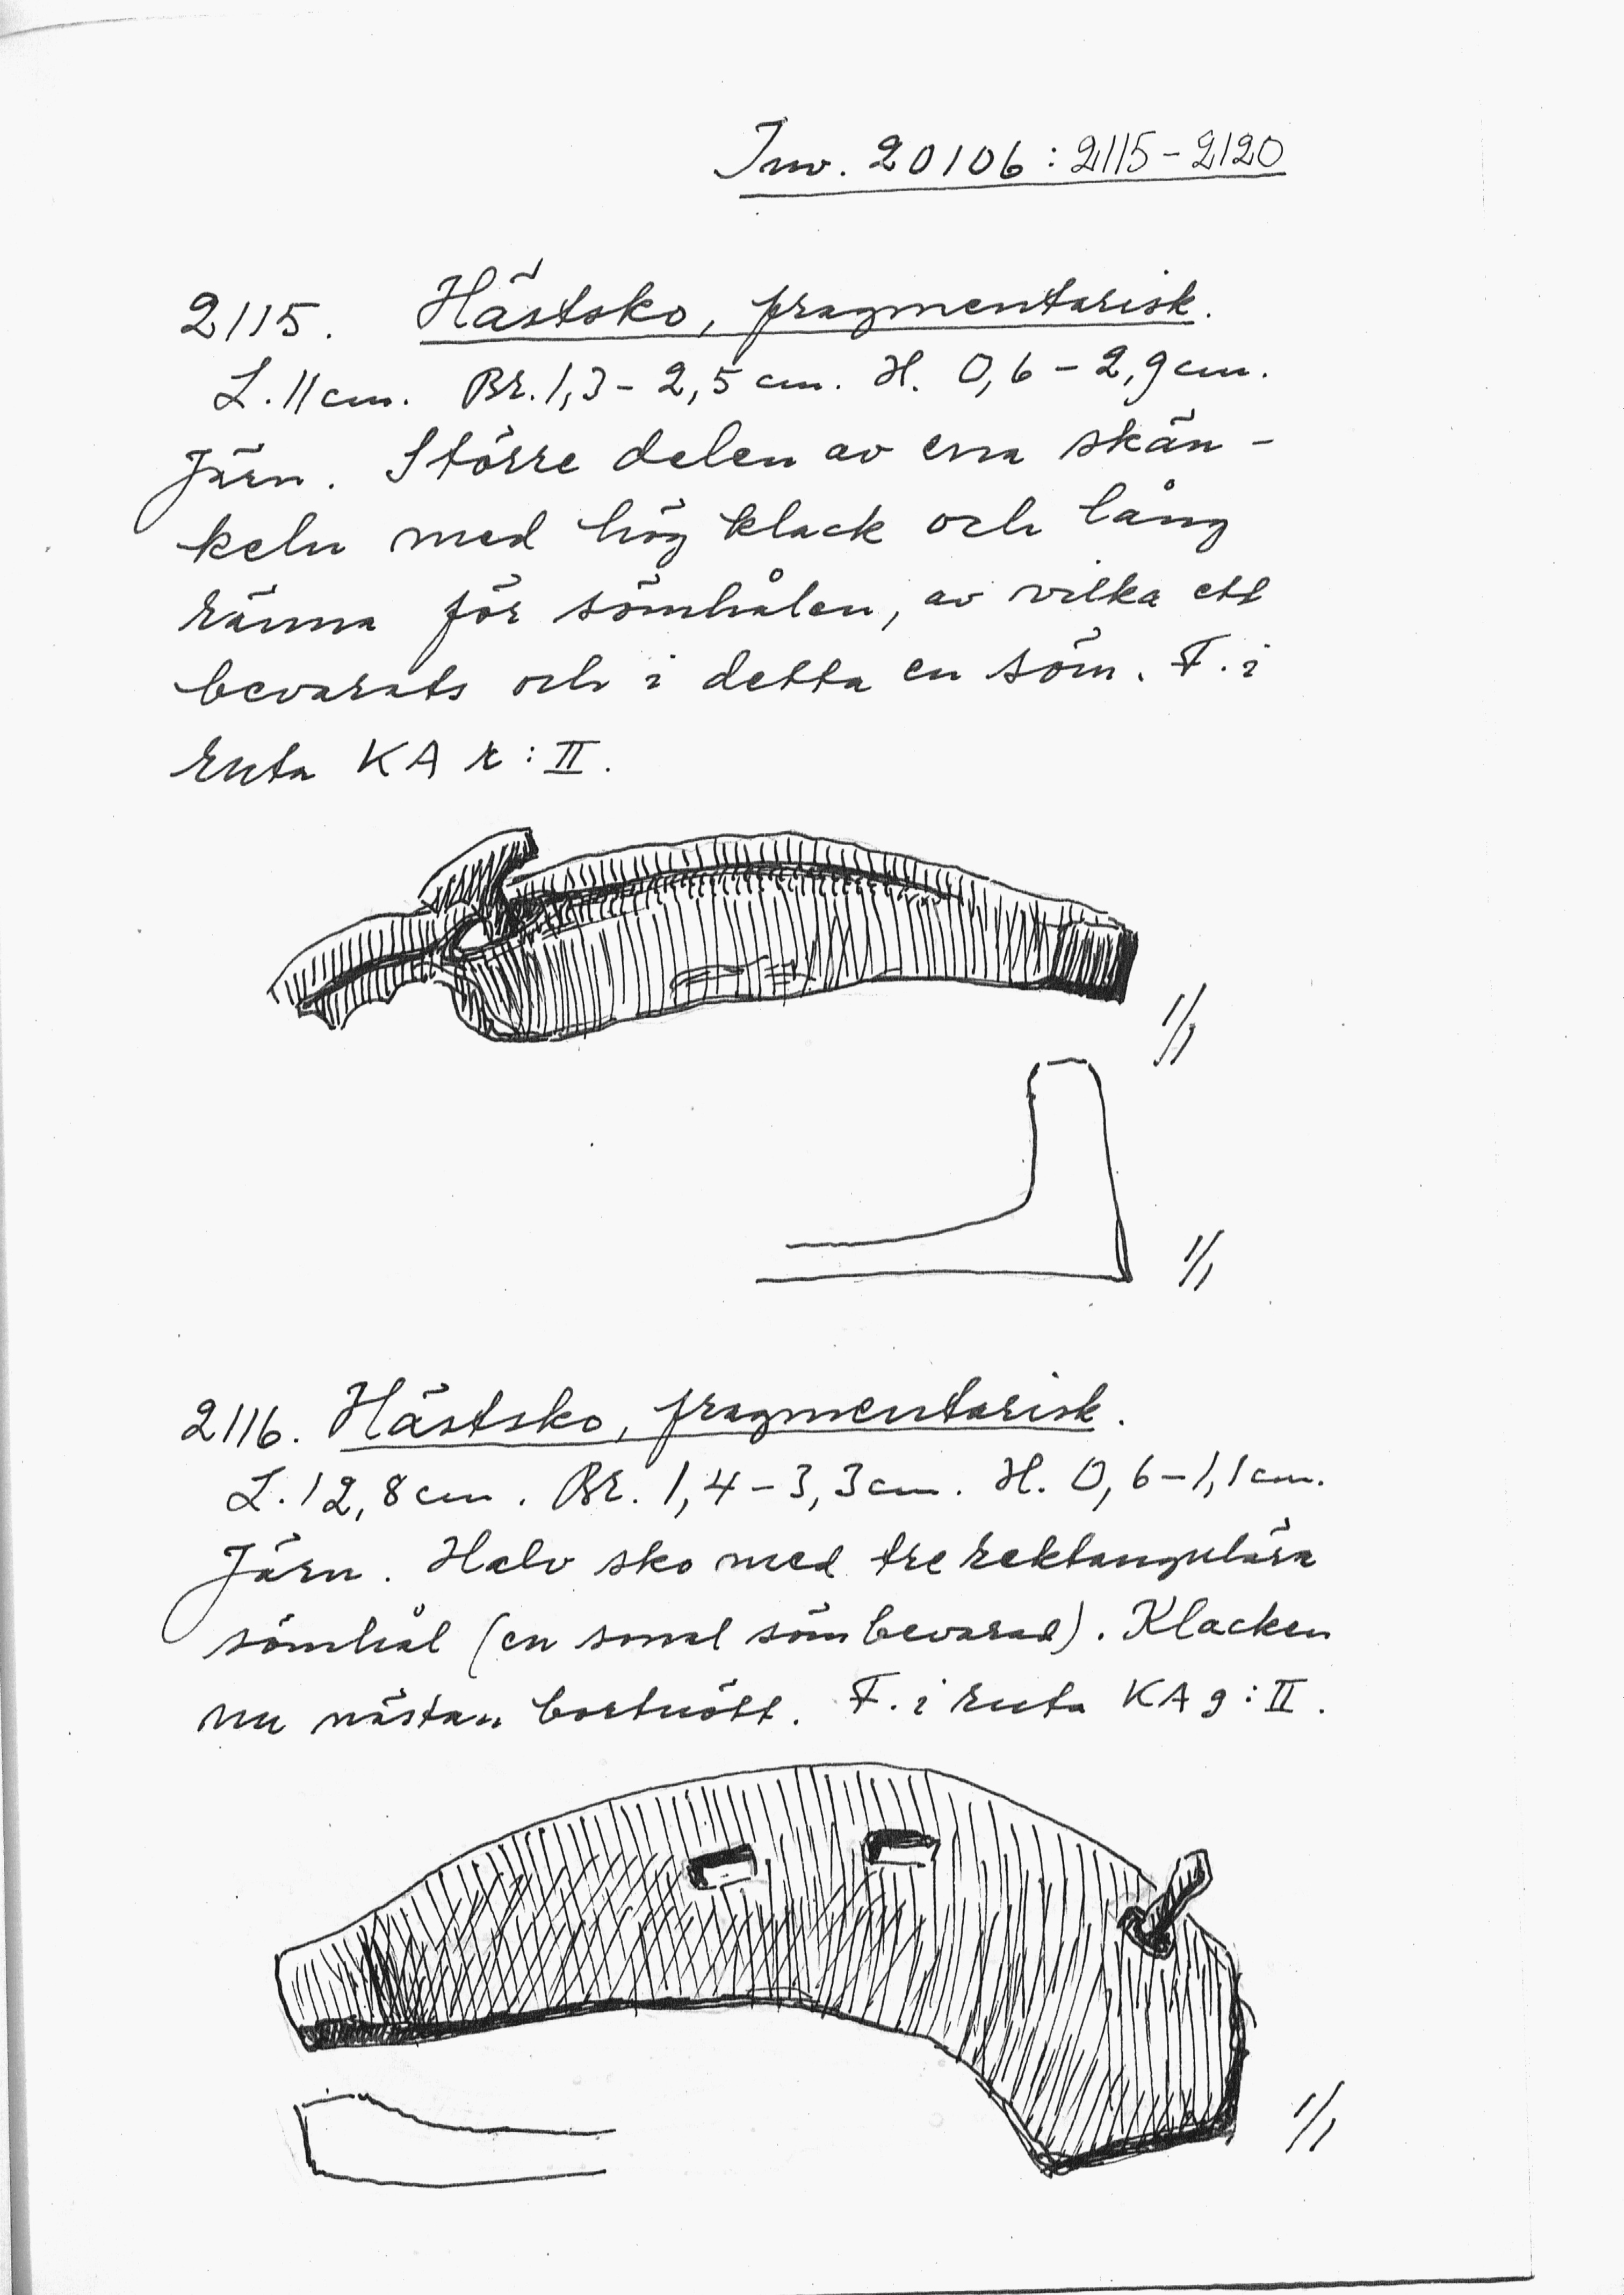 Inv. 20106:2115-2120
2115. Hästsko, fragmentarisk.
L. 11 cm. Br. 1,3-2,5 cm. H. 0,6-2,9 cm.
Järn. Större delen av ena skän-
keln med hög klack och lång
ränna för sömhålen, av vilka ett
bevarats och i detta en söm. F. i
ruta KA r:II.
1/1
1/1
2116. Hästsko, fragmentarisk.
L. 12,8 cm. Br. 1,4-3,3 cm. H. 0,6-1,1 cm.
Järn. Halv sko med tre rektangulära
sömhål (en smal söm bevarad). Klacken
nu nästan bortnött. F. i ruta KA g:II.
1/1